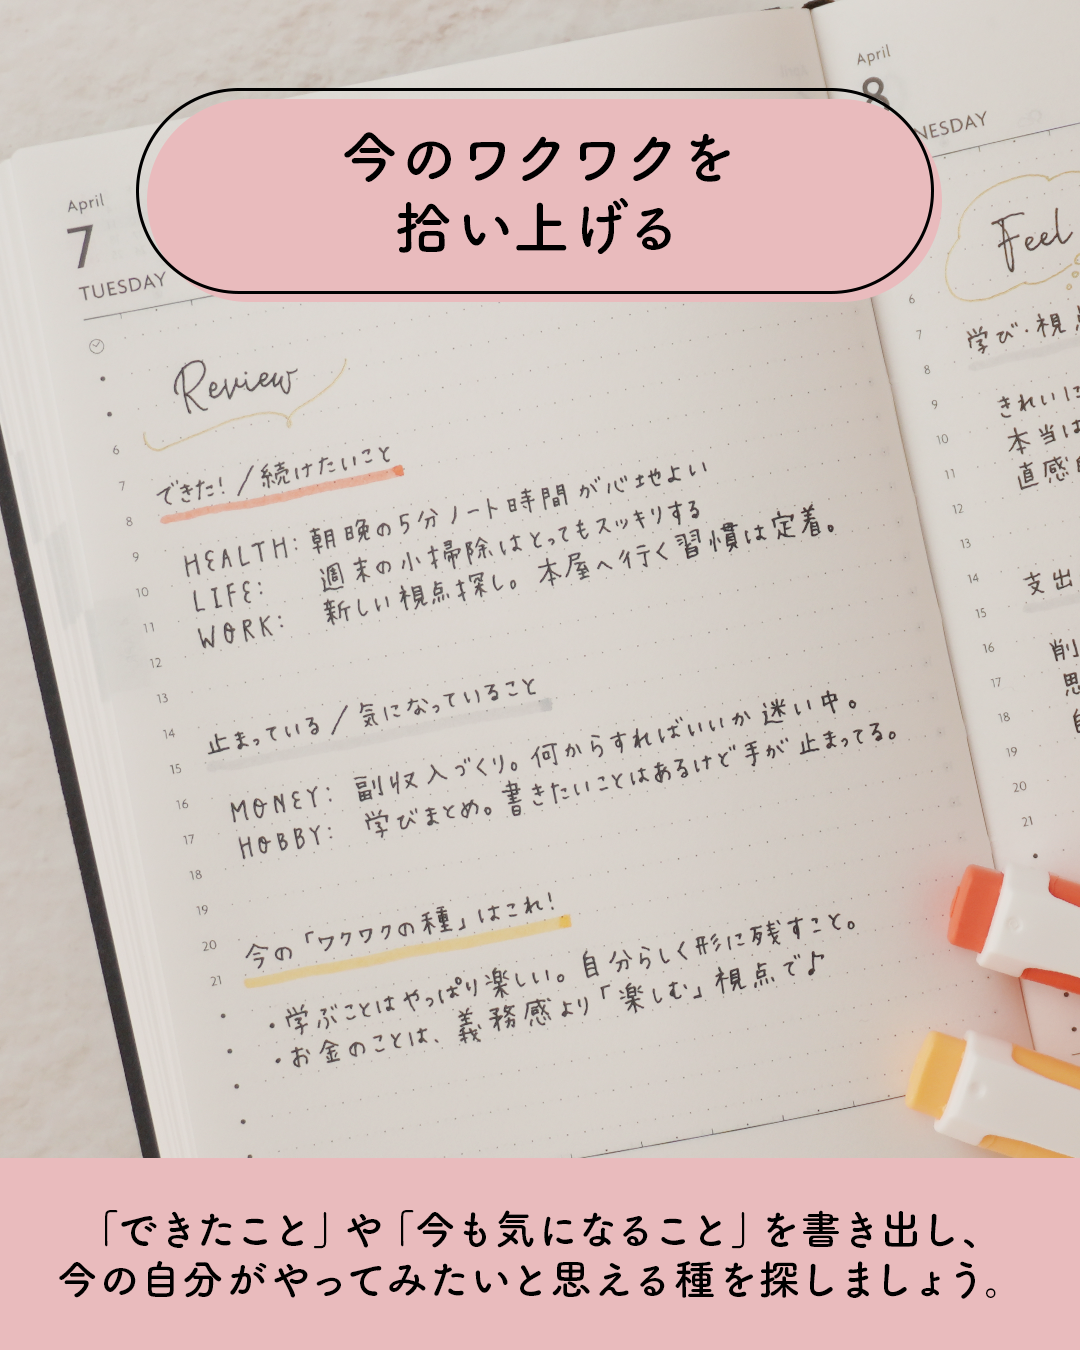 今のワクワクを
拾い上げる
April
7
TUESDAY
Review
できた！／続けたいこと
HEALTH: 朝晩の5分ノート時間が心地よい
LIFE: 週末の小掃除はとってもスッキリする
WORK: 新しい視点探し。本屋へ行く習慣は定着。
止まっている／気になっていること
MONEY: 副収入づくり。何からすればいいか迷い中。
HOBBY: 学びまとめ。書きたいことはあるけど手が止まってる。
今の「ワクワクの種」はこれ！
・学ぶことはやっぱり楽しい。自分らしく形に残すこと。
・お金のことは、義務感より「楽しむ」視点で♪
6
7
8
9
10
11
12
13
14
15
16
17
18
19
20
21
April
8
NESDAY
Feel
学び・視
きれいに
本当は
直感
支出
削
思
自
6
7
8
9
10
11
12
13
14
15
16
17
18
19
20
21
「できたこと」や「今も気になること」を書き出し、
今の自分がやってみたいと思える種を探しましょう。